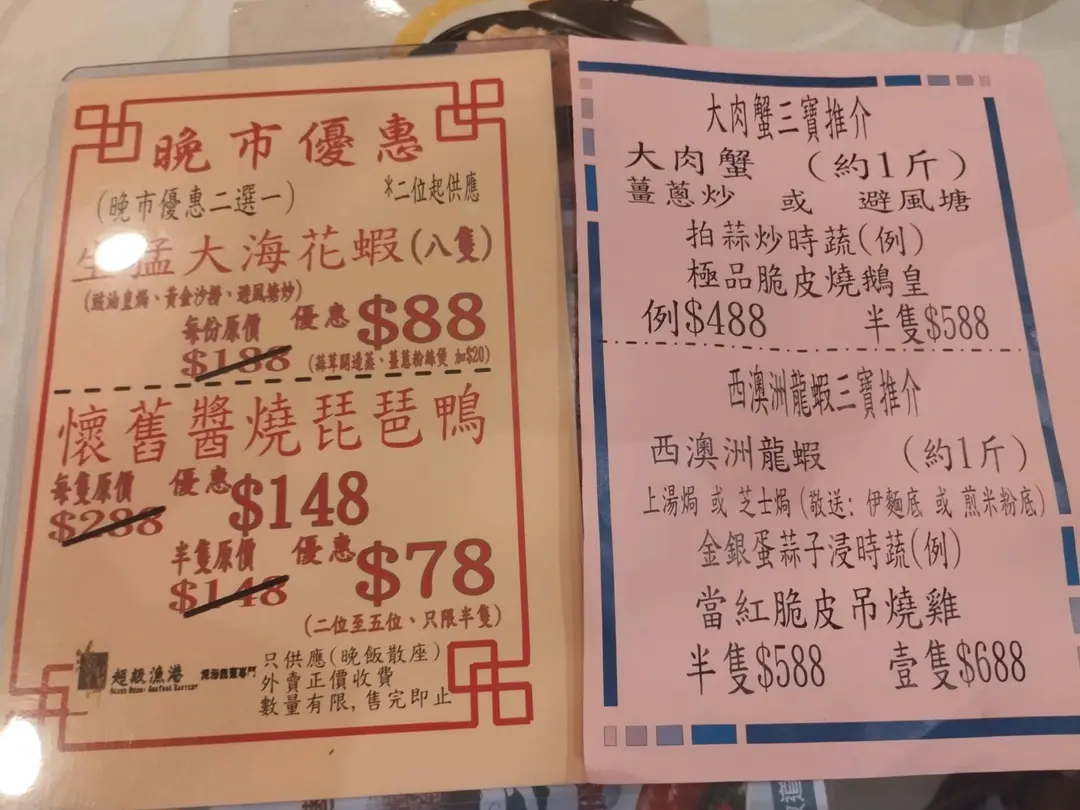 晚市優惠
(晚市優惠二選一) *二位起供應
生猛大海花蝦(八隻)
(豉油皇焗、黃金沙醬、避風塘炒)
每份原價 優惠 $88
$188 (蒜茸開邊蒸、薑蔥粉絲煲 加$20)
懷舊醬燒琵琶鴨
每隻原價 優惠 $148
$288
半隻原價 優惠 $78
$148
(二位至五位、只限半隻)
超級漁港
只供應(晚飯散座)
外賣正價收費
數量有限,售完即止
大肉蟹三寶推介
大肉蟹 (約1斤)
薑蔥炒 或 避風塘
拍蒜炒時蔬(例)
極品脆皮燒鵝皇
例$488 半隻$588
西澳洲龍蝦三寶推介
西澳洲龍蝦 (約1斤)
上湯焗 或 芝士焗 (敬送: 伊麵底 或 煎米粉底)
金銀蛋蒜子浸時蔬(例)
當紅脆皮吊燒雞
半隻$588 壹隻$688